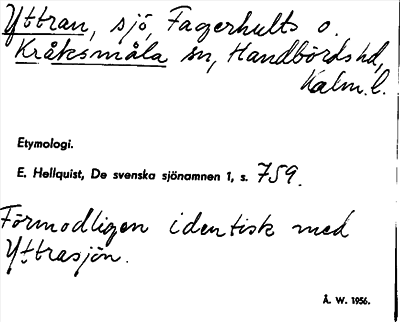 Yttran, sjö, Fagerhults o.
Kråksmåla sn, Handbörds hd,
Kalm. l.
Etymologi.
E. Hellquist, De svenska sjönamnen 1, s. 759.
Förmodligen identisk med
Yttrasjön.
Å. W. 1956.